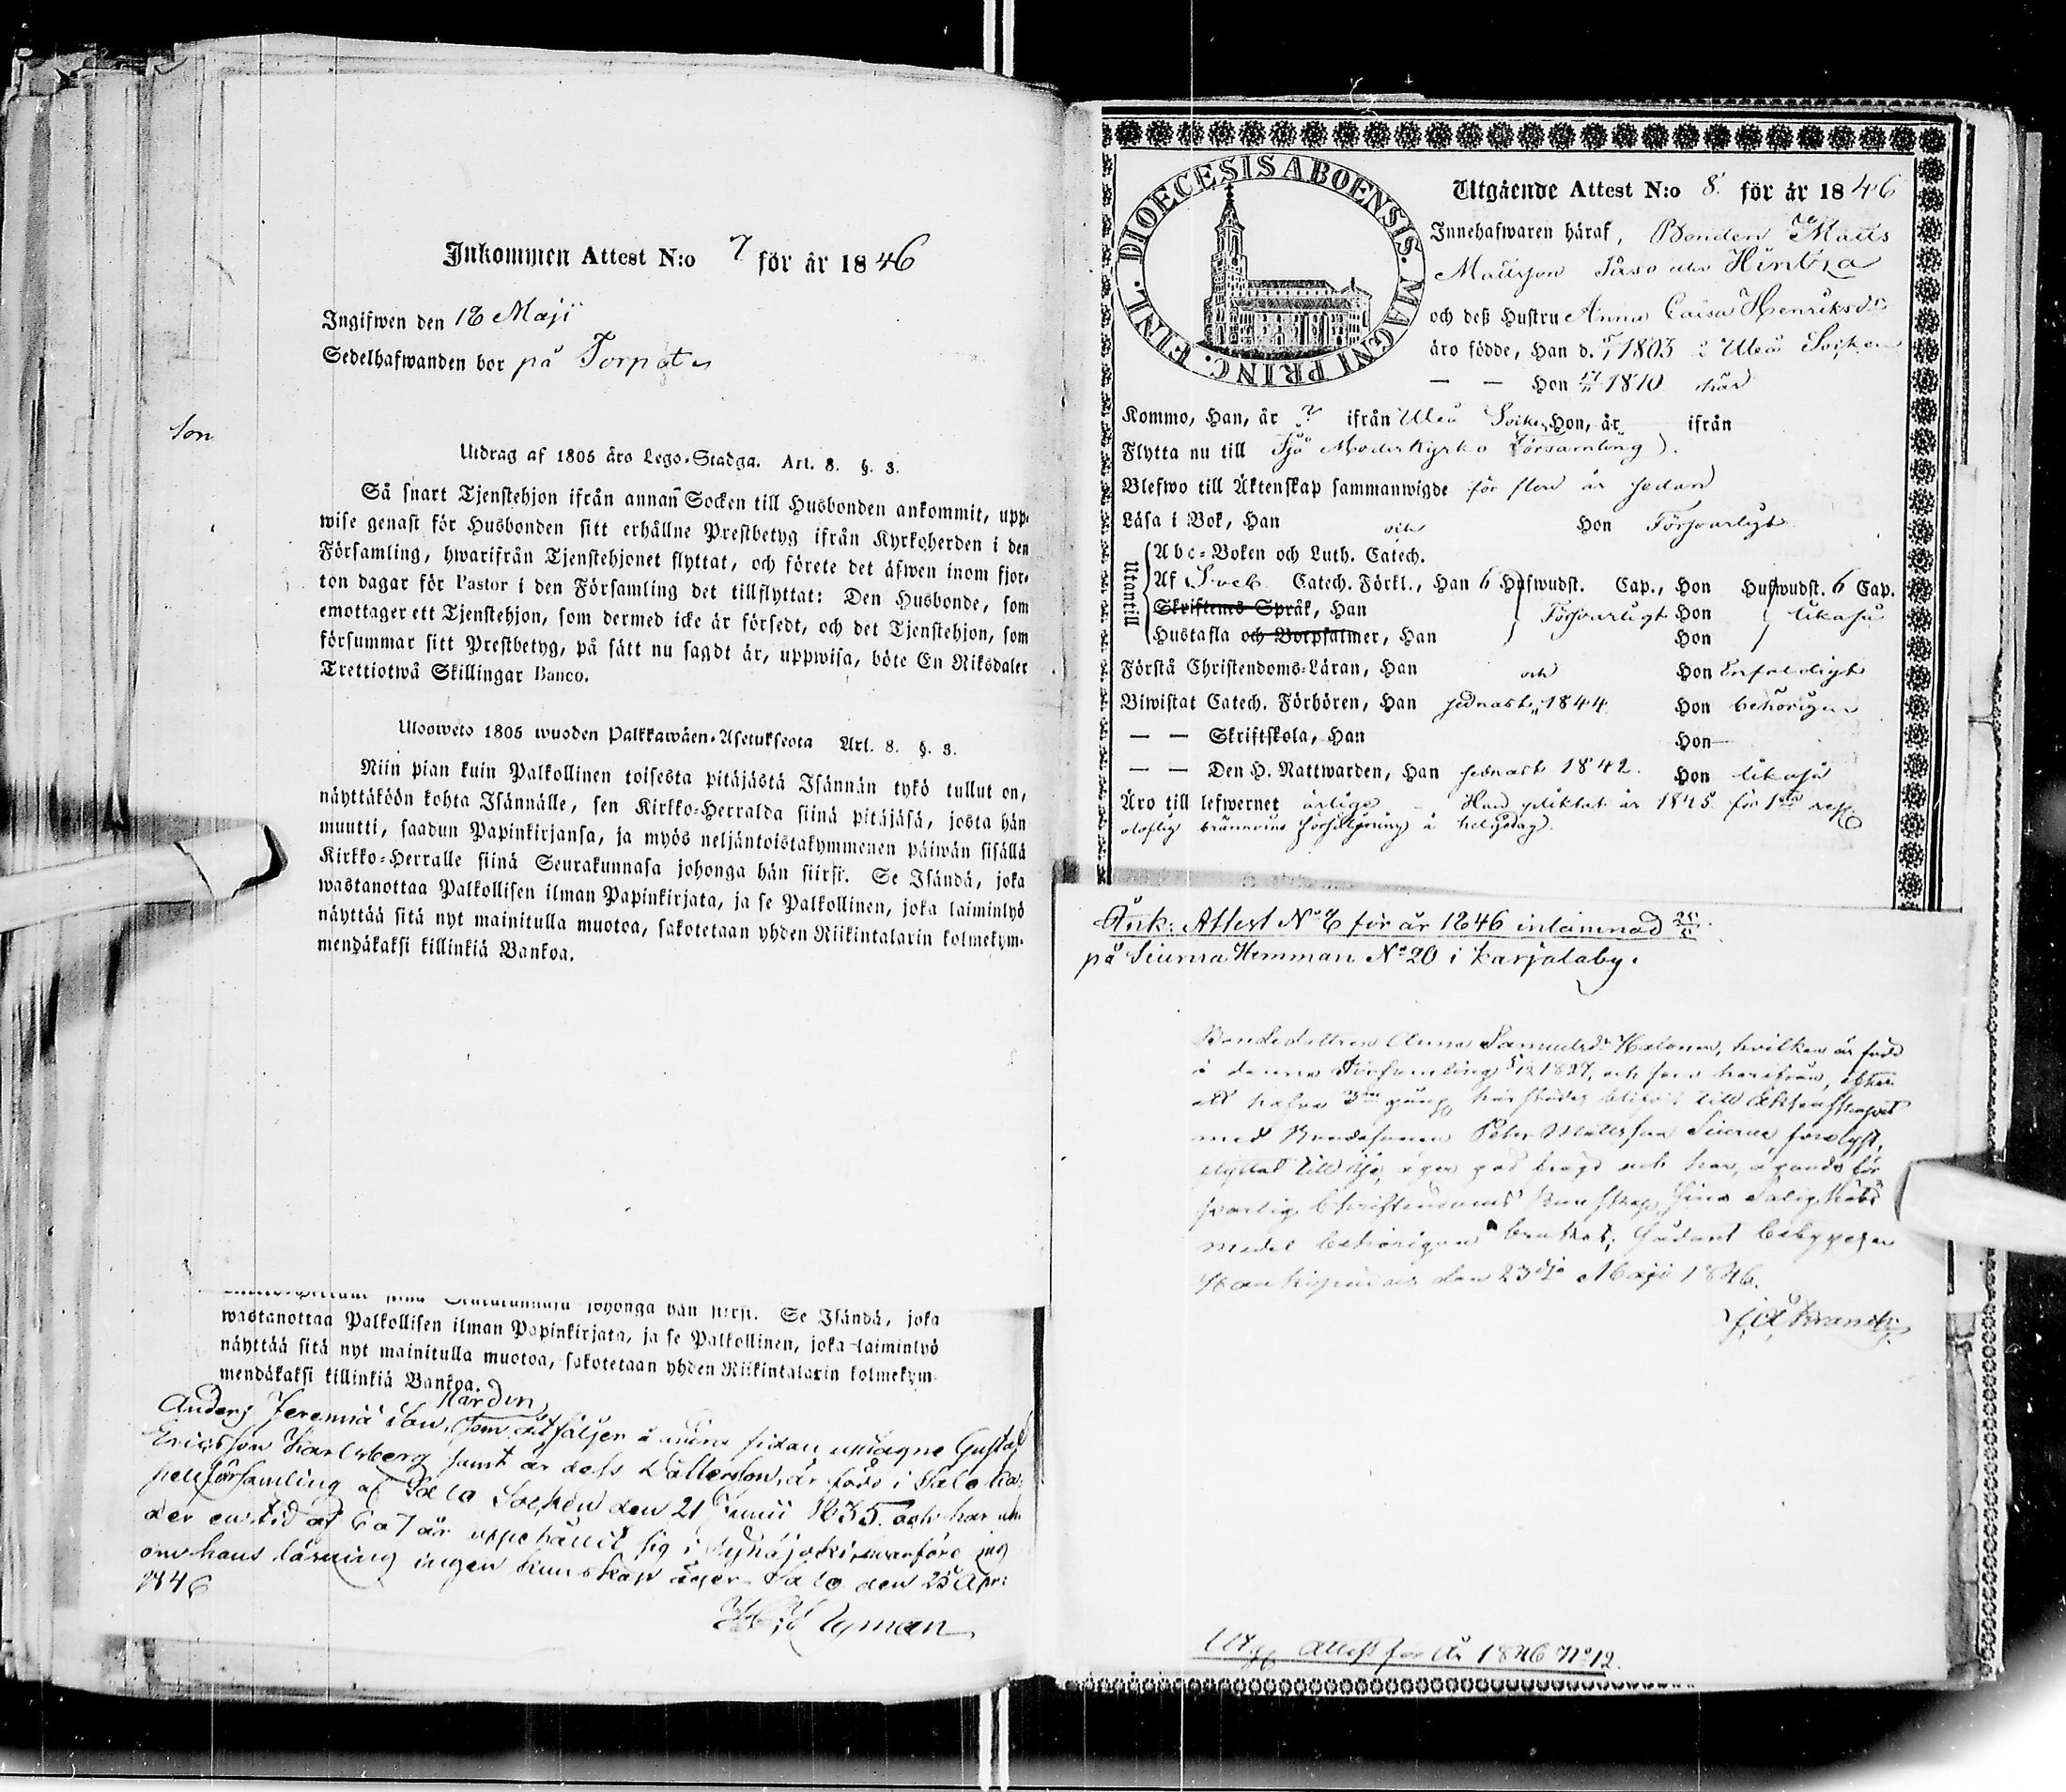 Inkommen Attest N:o 7 för år 1846
Ingifwen den 18 Maji
Sedelhafwanden bor på Torpet
son
Utdrag af 1805 års Lego-Stadga. Art. 8. §. 3.
Så snart Tjenstehjon ifrån annan Socken till Husbonden ankommit, upp-
wise genast för Husbonden sitt erhållne Prestbetyg ifrån Kyrkoherden i den
Församling, hwarifrån Tjenstehjonet flyttat, och förete det äfwen inom fjor-
ton dagar för Pastor i den Församling det tillflyttat: Den Husbonde, som
emottager ett Tjenstehjon, som dermed icke är försedt, och det Tjenstehjon, som
försummar sitt Prestbetyg, på sätt nu sagdt är, uppwisa, böte En Riksdaler
Trettiotwå Skillingar Banco.
Ulosweto 1805 wuoden Palkkawäen-Asetuksesta Art. 8. §. 3.
Niin pian kuin Palkollinen toisesta pitäjästä Isännän tykö tullut on,
näyttäköön kohta Isännälle, sen Kirkko-Herralda siinä pitäjäsä, josta hän
muutti, saadun Papinkirjansa, ja myös neljäntoistakymmenen päiwän sisällä
Kirkko-Herralle siinä Seurakunnasa johonga hän siirsi. Se Isändä, joka
wastanottaa Palkollisen ilman Papinkirjata, ja se Palkollinen, joka laiminlyö
näyttää sitä nyt mainitulla muotoa, sakotetaan yhden Riikintalarin kolmekym-
mendäkaksi killinkiä Bankoa.
johonga hän siirsi. Se Isändä, joka
wastanottaa Palkollisen ilman Papinkirjata, ja se Palkollinen, joka laiminlyö
näyttää sitä nyt mainitulla muotoa, sakotetaan yhden Riikintalarin kolmekym-
mendäkaksi killinkiä Bankoa.
Nardin
Anders Jeremiä son, som åtföljer å andra sidan upptagne Gustaf
Ericsson Karlsberg samt är dess Dotterson, är född i Salo Ka-
pellförsamling af Salo Socken den 21 Junii 1835. och har un-
der en tid af 6 a 7 år uppehållit sig i Pyhäjoki, hvarföre jag
om hans läsning ingen kunskap äger. Salo den 25 Apr:
1846
Nyman
DIOECESIS ABOENSIS. MAGNI PRINC. FINL.
Utgående Attest N:o 8. för år 1846
Innehafwaren häraf, Bonden Matts
Mattsson Hintsa
och deß Hustru Anna Caisa Henriksdr
äro födde, Han d. 1803 i Uleå Socken
— — Hon 1810 här
Kommo, Han, år ? ifrån Uleå Socken Hon, år ifrån
Flytta nu till Ijo Moderkyrko Församling.
Blefwo till Äktenskap sammanwigde för flere år sedan
Läsa i Bok, Han och Hon Försvarligt
Utantill
Abc-Boken och Luth. Catech.
Af Sveb. Catech. Förkl., Han 6 Hufwudst. Cap., Hon Hufwudst. 6 Cap.
Skriftenes Språk, Han Försvarligt Hon likaså
Hustafla och Botpsalmer, Han Hon
Förstå Christendoms-Läran, Han och Hon Enfaldigt
Biwistat Catech. Förhören, Han sednast 1844 Hon behörigen
— — Skriftskola, Han Hon
— — Den H. Nattwarden, Han sednast 1842. Hon likaså
Äro till lefwernet ärlige – Han pliktat år 1845 för 1sta resg
olaflig brännvins försäljning å helgedag.
Ank: Attest No 8 för år 1846 inlämnad 25/5.
på Siurua Hemman No 20 i Karjalaby.
Bondedottren Anna Samuelsdr Halonen, hvilken är född
i denna Församling 1827, och som härifrån, efter
att hafva 3dje gång härstädes blifvit till Äktenskapet
med Bondesonen Petter Mattsson Siurua forelyst,
flyttat till Ijo, äger god frägd och har, ägande för-
svarlig Christendoms kunskap, sina Salighets
medel behörigen brukat; sådant bebygger
Haukipudas den 23dje Maji 1846.
Utg. Attest för År 1846 No 12.